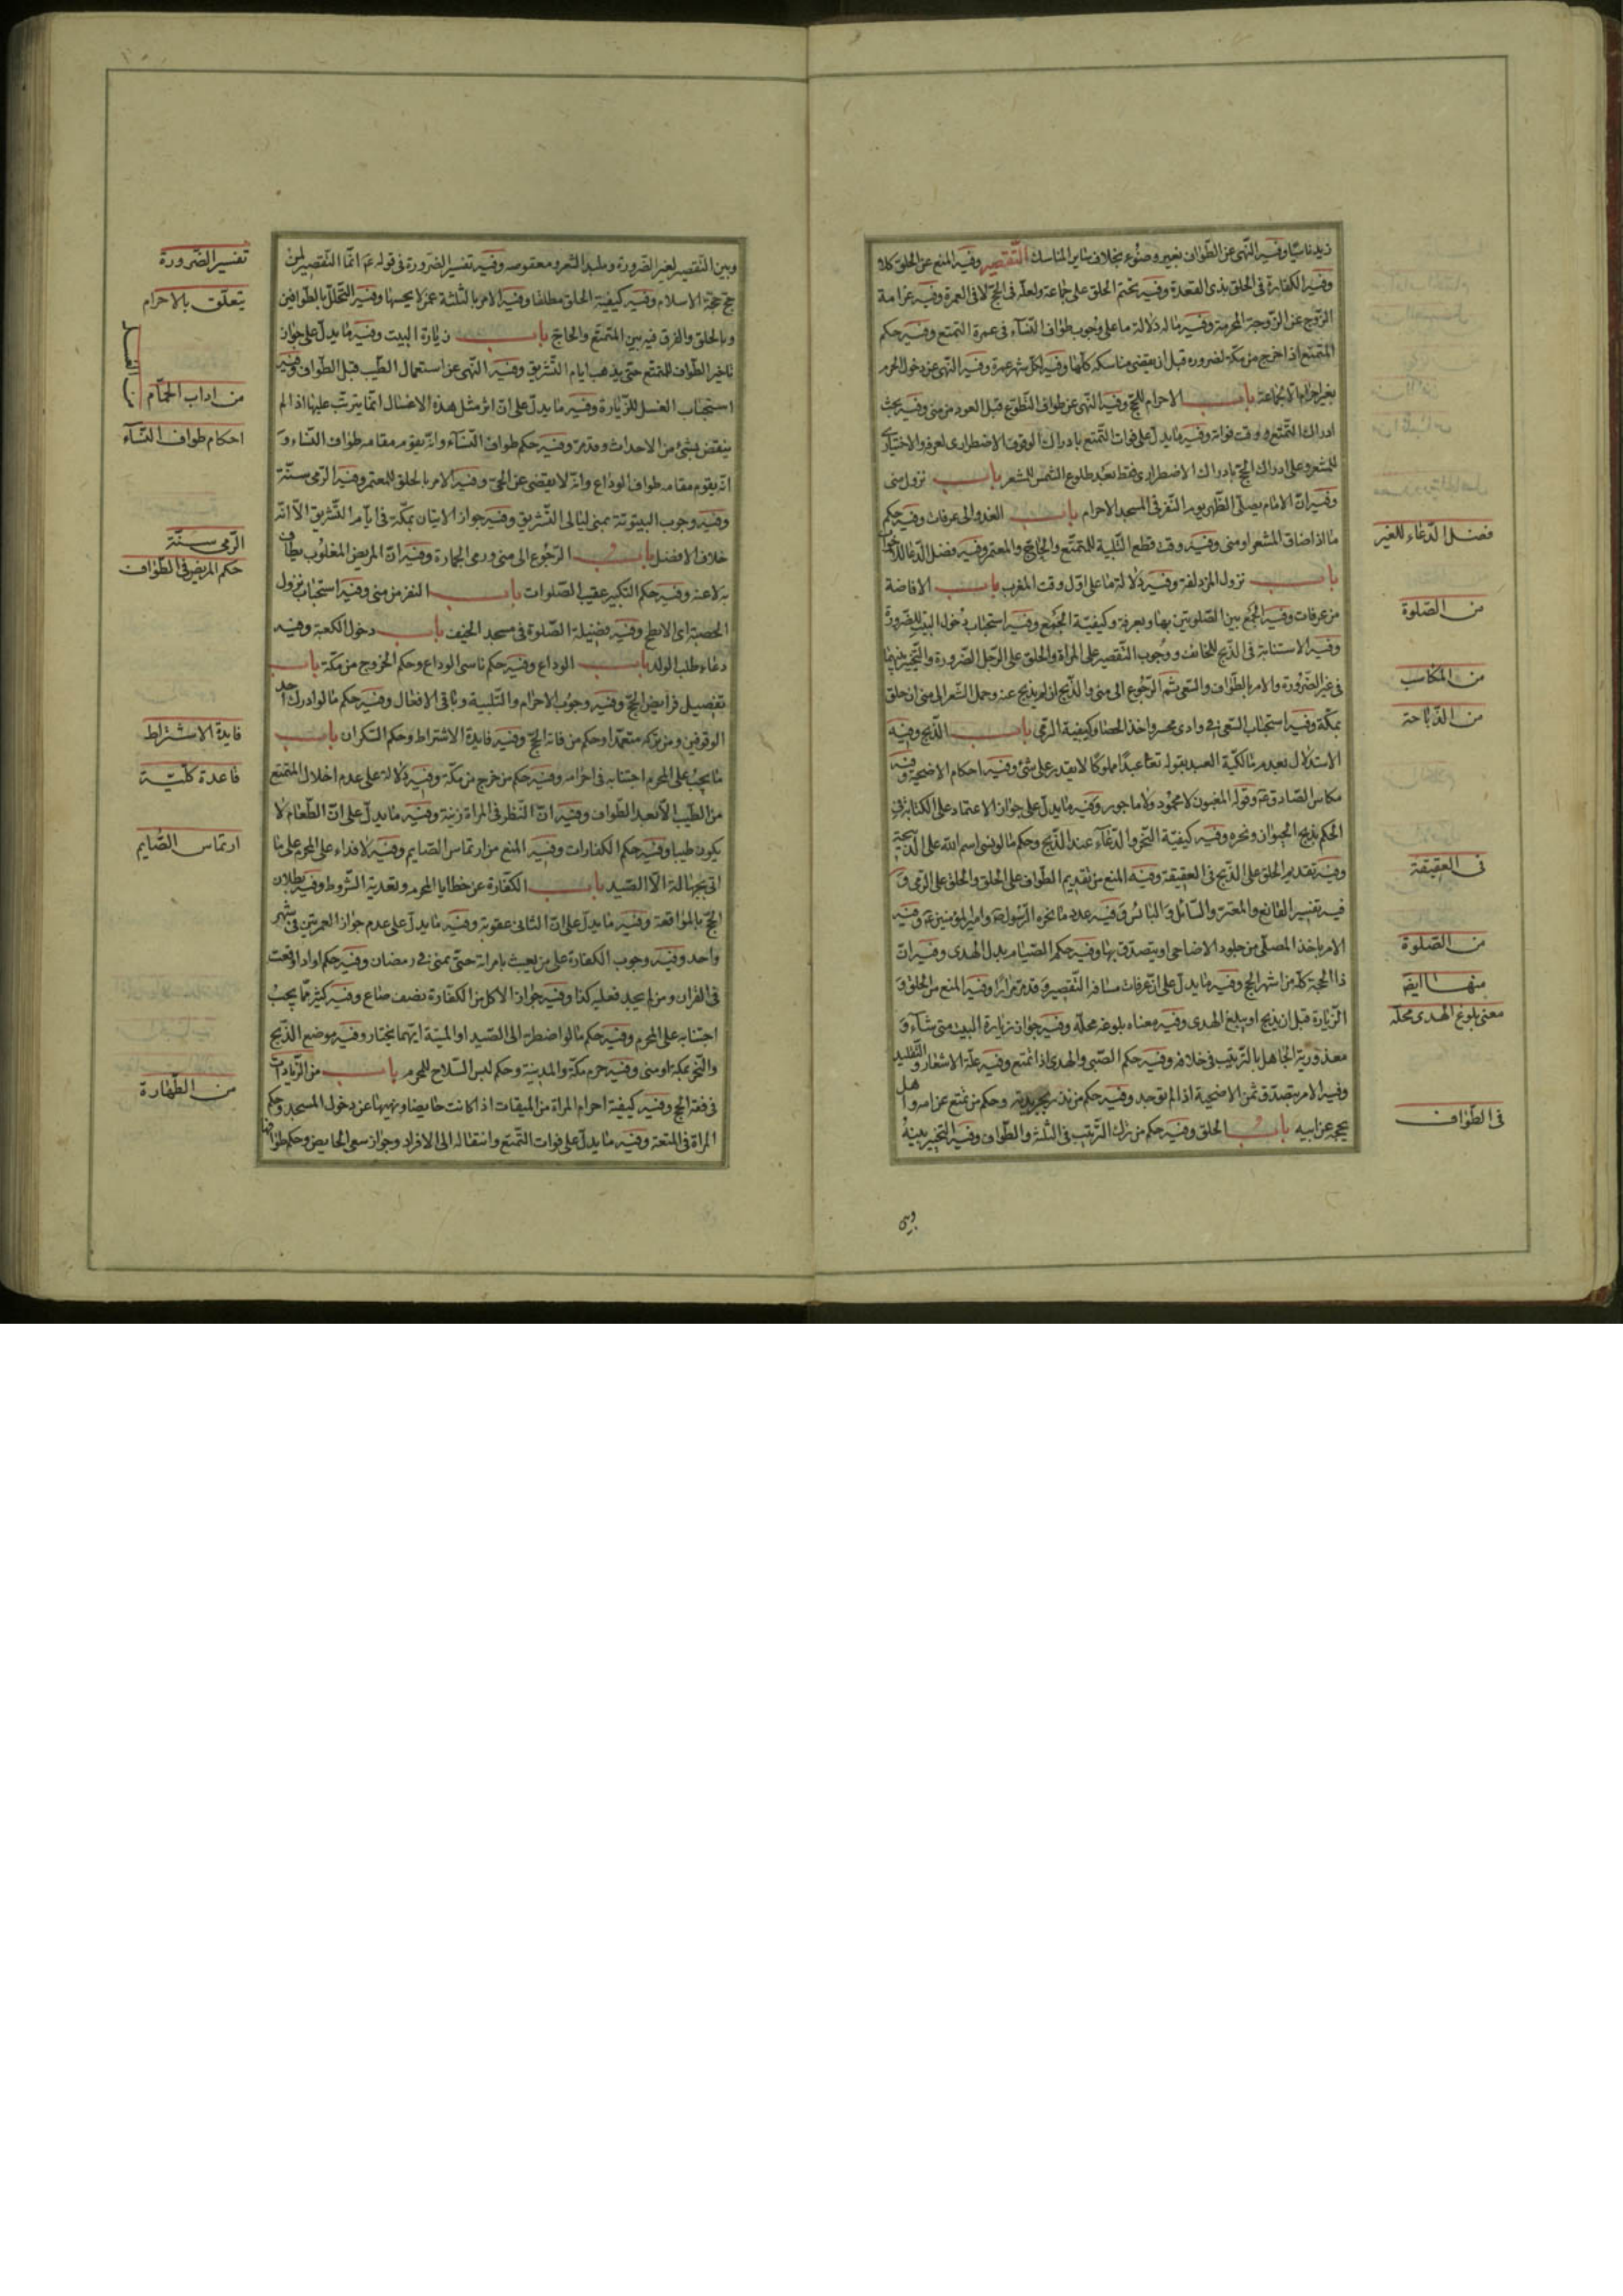 زيد ناسيا وفيه النهى عن الطواف بغير وضوء بخلاف ساير المناسك التقصير وفيه المنع عن الحلق
وفيه الكفارة فى الحلق بذى القعدة وفيه تحتم الحلق على جماعة ولعله فى الحج لا فى العمرة وفيه غرامة
الزوج عن الزوجة المحرمة وفيه ماله دلالة ما على وجوب طواف النساء فى عمرة التمتع وفيه حكم
المتمتع اذا خرج من مكة لضرورة قبل ان يقضى مناسكه كلها وفيه لكل شهر عمرة وفيه النهى عن دخول الحرم
بغير احرام الا لجماعة باب الاحرام للحج وفيه النهى عن طواف التطوع قبل العود من منى وفيه بحث
ادراك التمتع ووقت فواته وفيه ما يدل على فوات التمتع بادراك الوقوف الاضطرارى لعرفة والاختيارى
للمشعر وعلى ادراك الحج بادراك الاضطرارى فقط بعد طلوع الشمس للمشعر باب نزول منى
وفيه ان الامام يصلى الظهر يوم النفر فى المسجد الاحرام باب الغدو الى عرفات وفيه حكم
ما اذا ضاق المشعر او منى وفيه وقت قطع التلبية للمتمتع والحاج والمعتمر وفيه فضل الدعاء
باب نزول المزدلفة وفيه دلالة ما على اول وقت المغرب باب الافاضة
من عرفات وفيه الجمع بين الصلوتين بها وبعرفة وكيفية الجمع وفيه استحباب دخول البيت للصرورة
وفيه الاستنابة فى الذبح للخائف ووجوب التقصير على المراة والحلق على الرجل الصرورة والتخيير بينهما
فى غير الضرورة والامر بالطواف والسعى ثم الرجوع الى منى والذبح ان لم يذبح عنه وحمل الشعر الى منى ان حلق
بمكة وفيه استحباب السعى فى وادى محسر واخذ الحصا وكيفية الرمى باب الذبح وفيه
الاستدلال بعدم مالكية العبد بقوله تعا عبدا مملوكا لا يقدر على شئ وفيه احكام الاضحية وفيه
مكاس الصادق ع م وقوله المغبون لا محمود ولا ماجور وفيه ما يدل على جواز الاعتماد على الكتابة فى
الحكم بذبح الحيوان ونحره وفيه كيفية النحر والدعاء عند الذبح وحكم ما لو نسى اسم الله على الذبيحة
وفيه تقديم الحلق على الذبح فى العقيقة وفيه المنع من تقديم الطواف على الحلق والحلق على الرمى و
فيه تفسير القانع والمعتر والسائل والبائس وفيه عدد ما نحره الرسول ص وامير المؤمنين ع م وفيه
الامر باخذ المصلى من جلود الاضاحى او يتصدق بها وفيه حكم الصيام بدل الهدى وفيه ان
ذا الحجة كله من اشهر الحج وفيه ما يدل على ان عرفات مسافة التقصير وقد مر مرارا وفيه المنع من الحلق و
الزيارة قبل ان يذبح او يبلغ الهدى وفيه معناه بلوغه محله وفيه جواز زيارة البيت متى شاء و
معذورية الجاهل بالترتيب فى خلافه وفيه حكم الصبى والهدى اذا تمتع وفيه علة الاشعار والتقليد
وفيه الامر بتصدق ثمن الاضحية اذا لم توجد وفيه حكم من نذر وحكم من تمتع عن امه واهل
بحجه عن ابيه باب الحلق وفيه حكم من ترك الترتيب فى الثلثة والطواف وفيه التخيير بينه
فضل الدعاء للغير
من الصلوة
من المكاسب
من الذباحة
فى العقيقة
من الصلوة
منها ايضا
معنى بلوغ الهدى محله
فى الطواف
وبين
وبين التقصير لغير الضرورة وملبد الشعر ومعقوصه وفيه تفسير الضرورة فى قوله ع م انما التقصير لمن
حج حجة الاسلام وفيه كيفية الحلق مطلقا وفيه الامر بالثلثة عمن لا يحسنها وفيه التحلل بالطوافين
وبالحلق والفرق فيه بين المتمتع والحاج باب زيارة البيت وفيه ما يدل على جواز
تاخير الطواف للمتمتع حتى يذهب ايام التشريق وفيه النهى عن استعمال الطيب قبل الطواف وفيه
استحباب الغسل للزيارة وفيه ما يدل على ان اثر مثل هذه الاغسال انما يترتب عليها اذا لم
ينقض بشئ من الاحداث وقد مر وفيه حكم طواف النساء وانه يقوم مقامه طواف النساء و
انه يقوم مقامه طواف الوداع وانه لا يقضى عن الحى وفيه الامر بالحلق للمعتمر وفيه الرمى سنة
وفيه وجوب البيتوتة بمنى ليالى التشريق وفيه جواز الاتيان بمكة فى ايام التشريق الا انه
خلاف الافضل باب الرجوع الى منى ورمى الجمارة وفيه ان المريض المغلوب يطاف
به لا عنه وفيه حكم التكبير عقيب الصلوات باب النفر من منى وفيه استحباب نزول
الحصبة اى الابطح وفيه فضيلة الصلوة فى مسجد الخيف باب دخول الكعبة وفيه
دعاء طلب الولد باب الوداع وفيه حكم ناسى الوداع وحكم الخروج من مكة باب
تفصيل فرايض الحج وفيه وجوب الاحرام والتلبية وباقى الافعال وفيه حكم ما لو ادرك احد
الوقوفين ومن تركه متعمدا وحكم من فاته الحج وفيه فايدة الاشتراط وحكم السكران باب
ما يجب على المحرم اجتنابه فى احرامه وفيه حكم من خرج من مكة وفيه دلالة على عدم اخلال المتمتع
من الطيب الا بعد الطواف وفيه ان النظر فى المراة زينة وفيه ما يدل على ان الطعام لا
يكون طيبا وفيه حكم الكفارات وفيه المنع من ارتماس الصايم وفيه لا فداء على المحرم على ما
اتى بجهالة الا الصيد باب الكفارة عن خطايا المحرم وتعديه الشروط وفيه بطلان
الحج بالمواقعة وفيه ما يدل على ان الثانى عقوبة وفيه ما يدل على عدم جواز العمرتين فى شهر
واحد وفيه وجوب الكفارة على من يعبث بامراته حتى يمنى فى رمضان وفيه حكم او اذا وقعت
فى القران ومن لم يجد فعليه كذا وفيه جواز الاكل من الكفارة بنصف صاع وفيه كثير مما يجب
اجتنابه على المحرم وفيه حكم ما لو اضطر الى الصيد او الميتة ايهما يختار وفيه موضع الذبح
والنحر بمكة او منى وفيه حرم مكة والمدينة وحكم لبس السلاح للمحرم باب من الزيادات
فى فقه الحج وفيه كيفية احرام المراة من الميقات اذا كانت حايضا ونهيها عن دخول المسجد وحكم
المراة فى المتعة وفيه ما يدل على فوات التمتع وانتقاله الى الافراد وجواز سعى الحايض وحكم طوافها
تفسير الضرورة
يتعلق بالاحرام
من اداب الحمام
احكام طواف النساء
الرمى سنة
حكم المريض فى الطواف
فايدة الاشتراط
قاعدة كلية
ارتماس الصايم
من الطهارة